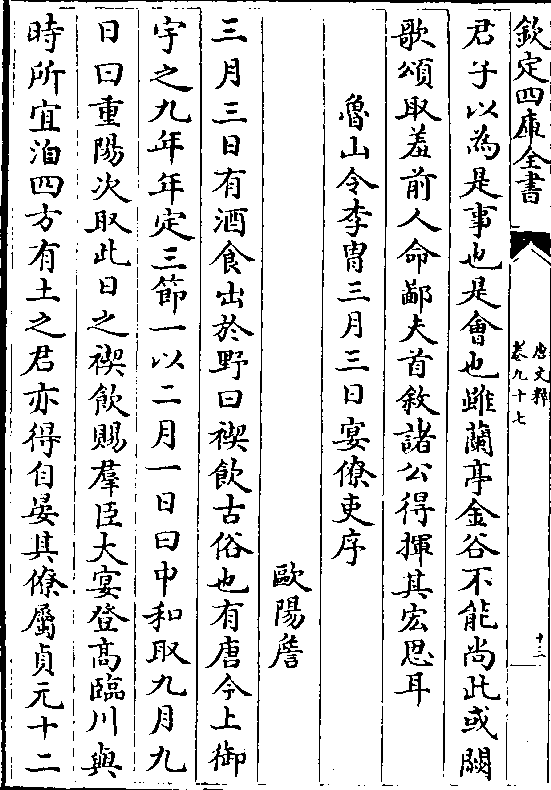 欽定四庫全書
唐文粹
卷九十七
十三
君子以為是事也是會也雖蘭亭金谷不能尚此或闕
歌頌取羞前人命鄙夫首敘諸公得揮其宏思耳
魯山令李胄三月三日宴僚吏序
歐陽詹
三月三日有酒食出於野曰禊飲古俗也有唐今上御
宇之九年年定三節一以二月一日曰中和取九月九
日曰重陽次取此日之禊飲賜羣臣大宴登高臨川與
時所宜洎四方有土之君亦得自晏其僚屬貞元十二